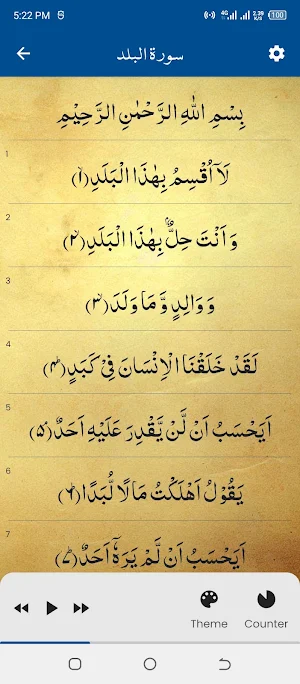 5:22 PM
4G 2.39 K/S 100
سورة البلد
بِسْمِ اللهِ الرَّحْمٰنِ الرَّحِيْمِ
1
لَآ اُقْسِمُ بِهٰذَا الْبَلَدِ ﴿۱﴾
2
وَ اَنْتَ حِلٌّۢ بِهٰذَا الْبَلَدِ ﴿۲﴾
3
وَ وَالِدٍ وَّ مَا وَلَدَ ﴿۳﴾
4
لَقَدْ خَلَقْنَا الْاِنْسَانَ فِیْ كَبَدٍ ﴿۴﴾
5
اَیَحْسَبُ اَنْ لَّنْ یَّقْدِرَ عَلَیْهِ اَحَدٌ ﴿۵﴾
6
یَقُوْلُ اَهْلَكْتُ مَالًا لُّبَدًا ﴿۶﴾
7
اَیَحْسَبُ اَنْ لَّمْ یَرَهٗۤ اَحَدٌ ﴿۷﴾
Theme Counter